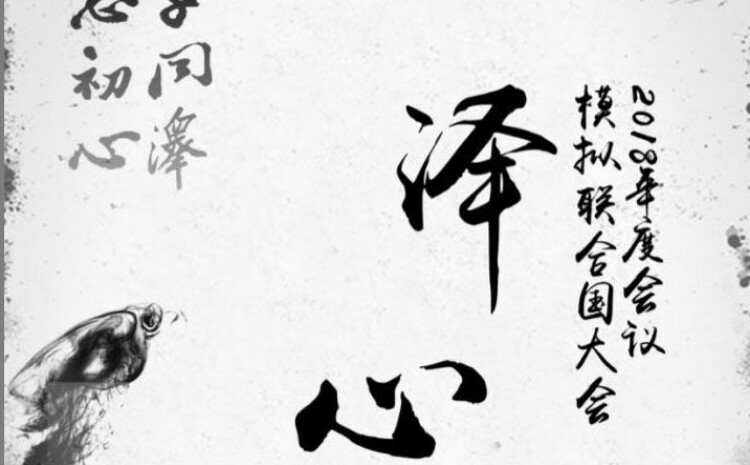 2018年度会议
模拟联合国大会
泽
心
同澤
初心